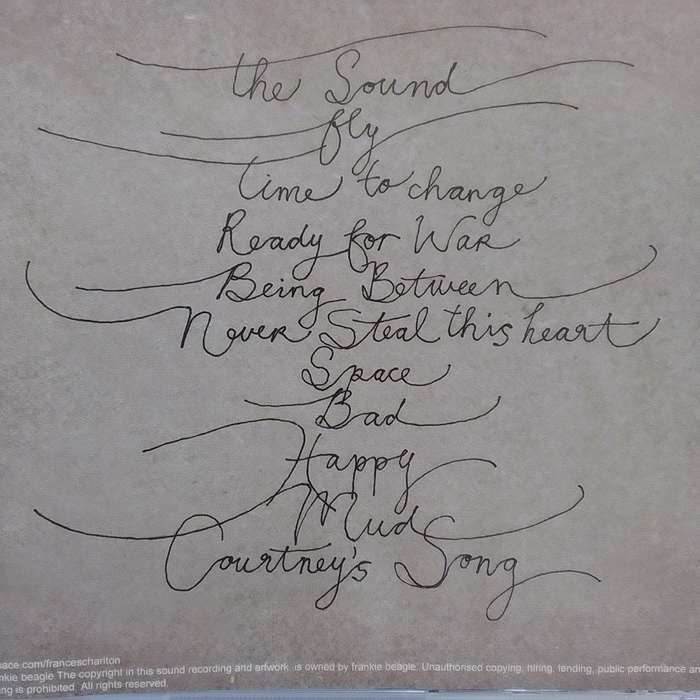 the Sound
fly
time to change
Ready for War
Being Between
Never Steal this heart
Space
Bad
Happy
Mud
Courtney's Song
pace.com/francescharlton
nkie beagle The copyright in this sound recording and artwork is owned by frankie beagle. Unauthorised copying, hiring, lending, public performance an
ng is prohibited. All rights reserved.